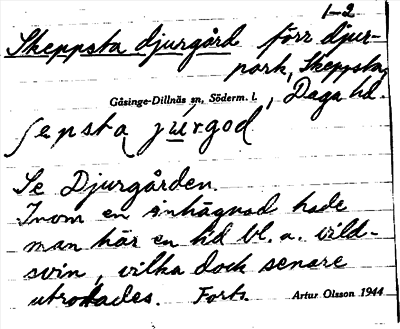 1-2
Skeppsta djurgård förr djur-
park, Skeppsta,
Gåsinge-Dillnäs sn, Söderm. l., Daga hd.
ʃepsta jurgod
Se Djurgården.
Inom en inhägnad hade
man här en tid bl. a. vild-
svin, vilka dock senare
utrotades. Forts. Artur Olsson 1944